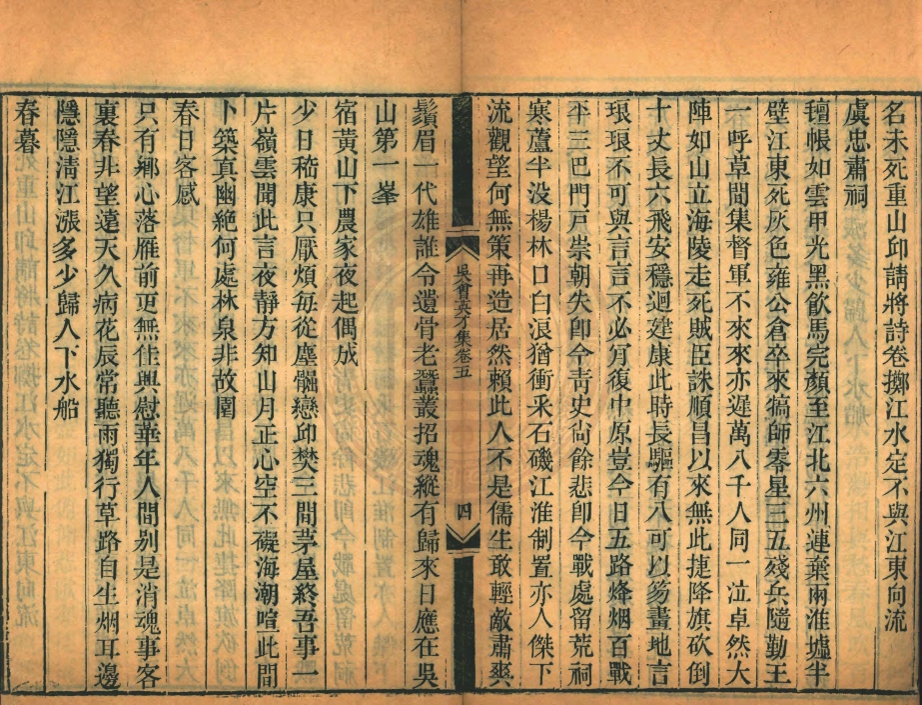 名未死重山卬請將詩卷擲江水定不與江東向流
虞忠肅祠
氊帳如雲甲光黑飲馬完顏至江北六州連棄兩淮墟半
壁江東死灰色雍公倉卒來犒師零星三五殘兵隨勤王
一呼草間集督軍不來來亦遲萬八千人同一泣卓然大
陣如山立海陵走死賊臣誅順昌以來無此捷降旗砍倒
十丈長六飛安穩迴建康此時長驅有八可以笏畫地言
琅琅不可與言言不必肎復中原豈今日五路烽烟百戰
平三巴門戸崇朝失卽今靑史尙餘悲卽今戰處留荒祠
寒蘆半没楊林口白浪猶衝采石磯江淮制置亦人傑下
流觀望何無策再造居然賴此人不是儒生敢輕敵肅爽
吳會英才集卷五
四
鬚眉一代雄誰令遺骨老蠶叢招魂縱有歸來日應在吳
山第一峯
宿黃山下農家夜起偶成
少日嵇康只厭煩每從塵鞿戀邱樊三間茅屋終吾事一
片嶺雲聞此言夜靜方知山月正心空不礙海潮喧此間
卜築真幽絶何處林泉非故園
春日客感
只有鄉心落雁前更無佳興慰華年人間别是消魂事客
裏春非望遠天久病花辰常聽雨獨行草路自生烟耳邊
隱隱淸江漲多少歸人下水船
春暮